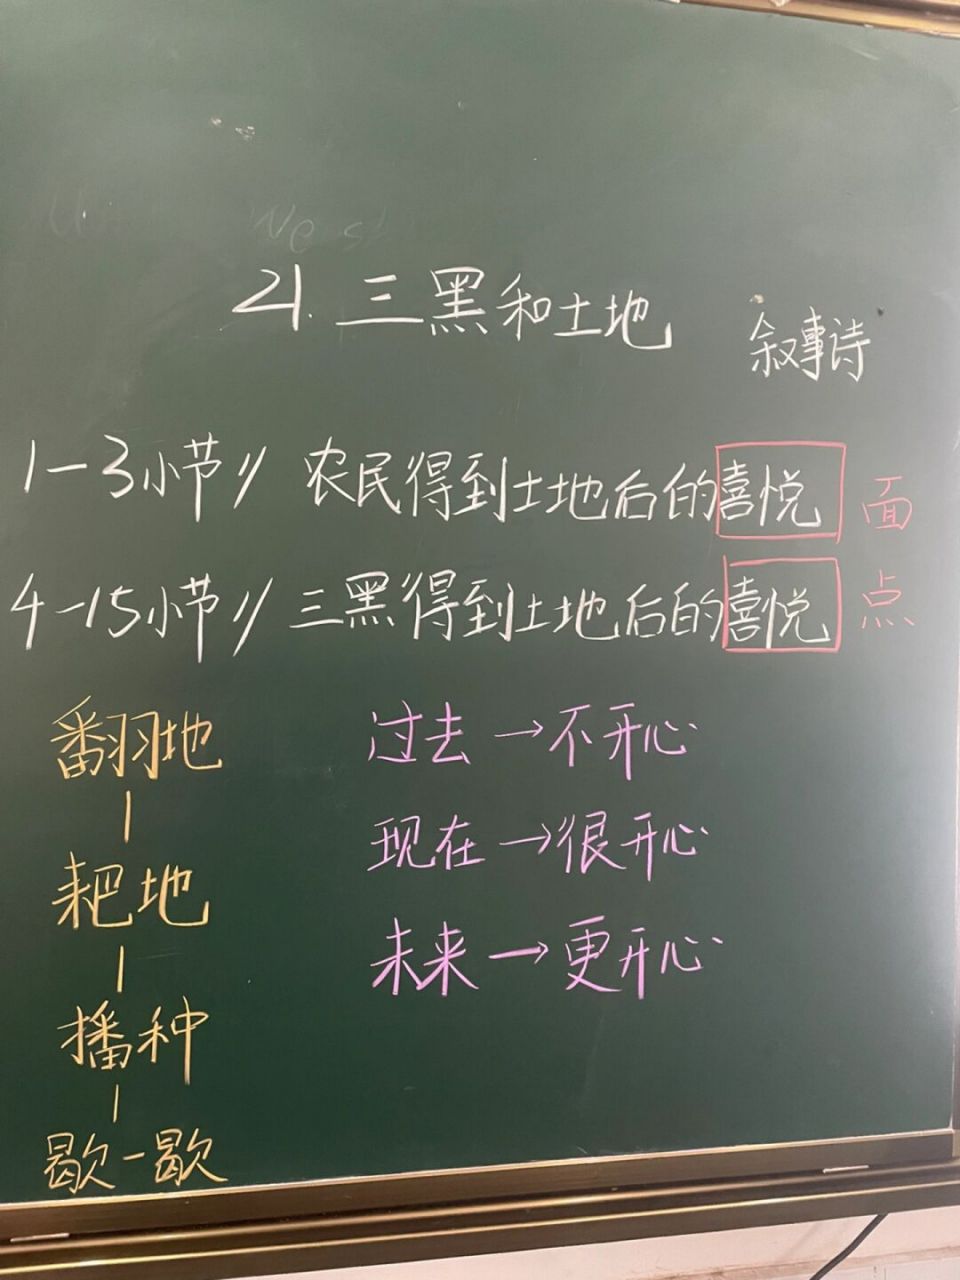 21. 三黑和土地
叙事诗
1-3小节// 农民得到土地后的喜悦 面
4-15小节// 三黑得到土地后的喜悦 点
翻地
耙地
播种
歇一歇
过去→不开心
现在→很开心
未来→更开心